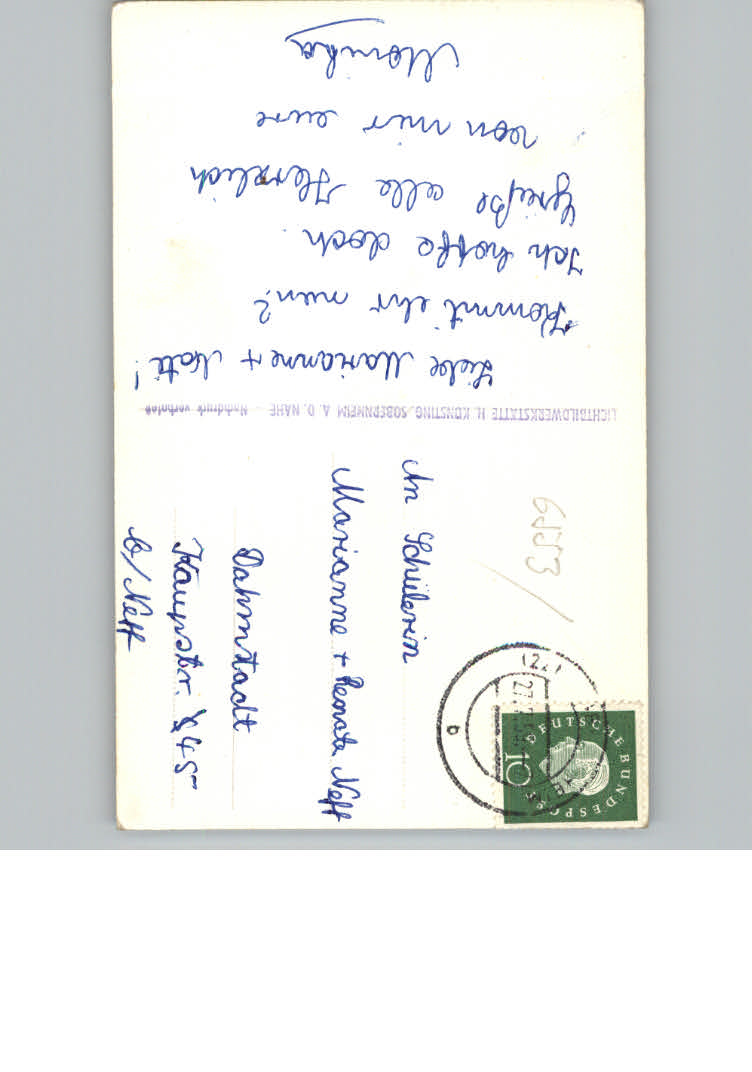 Liebe Marianne + Nati!
Kommt ihr nun?
Ich hoffe doch.
Grüße alle Herzlich
von mir eure
Monika
LICHTBILDWERKSTÄTTE H. KONSTING, SOBERNHEIM A. D. NAHE - Nachdruck verboten
6553
An Schülerin
Marianne + Renate Neff
Dahmstadt
Kaupstr. 45
b/ Neff
(22
27
b
10
DEUTSCHE BUNDESPOST